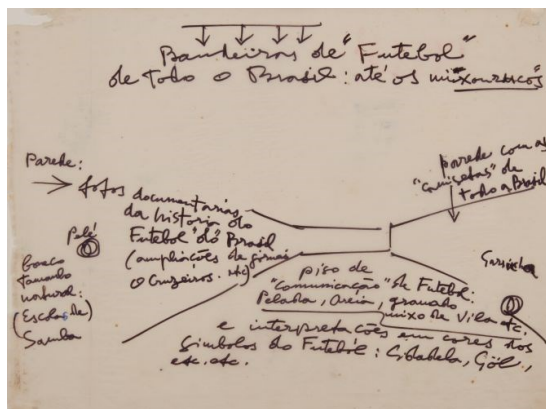 Bandeiras de "Futebol"
de todo o Brasil: até os
Parede:
fotos documentarias
da história do
Futebol do Brasil
(ampliações de jornais
O Cruzeiros. etc)
parede com as
"camisetas" de
todo o Brasil
Pelé
boneco
tamanho
natural:
(Escola de
Samba
Garrincha
piso de
"Comunicação" de Futebol:
Pelada, Areia, gramado
mixo de Vila etc.
e interpretações em cores dos
Símbolos do Futebol: Cidadela, Göl,
etc. etc.